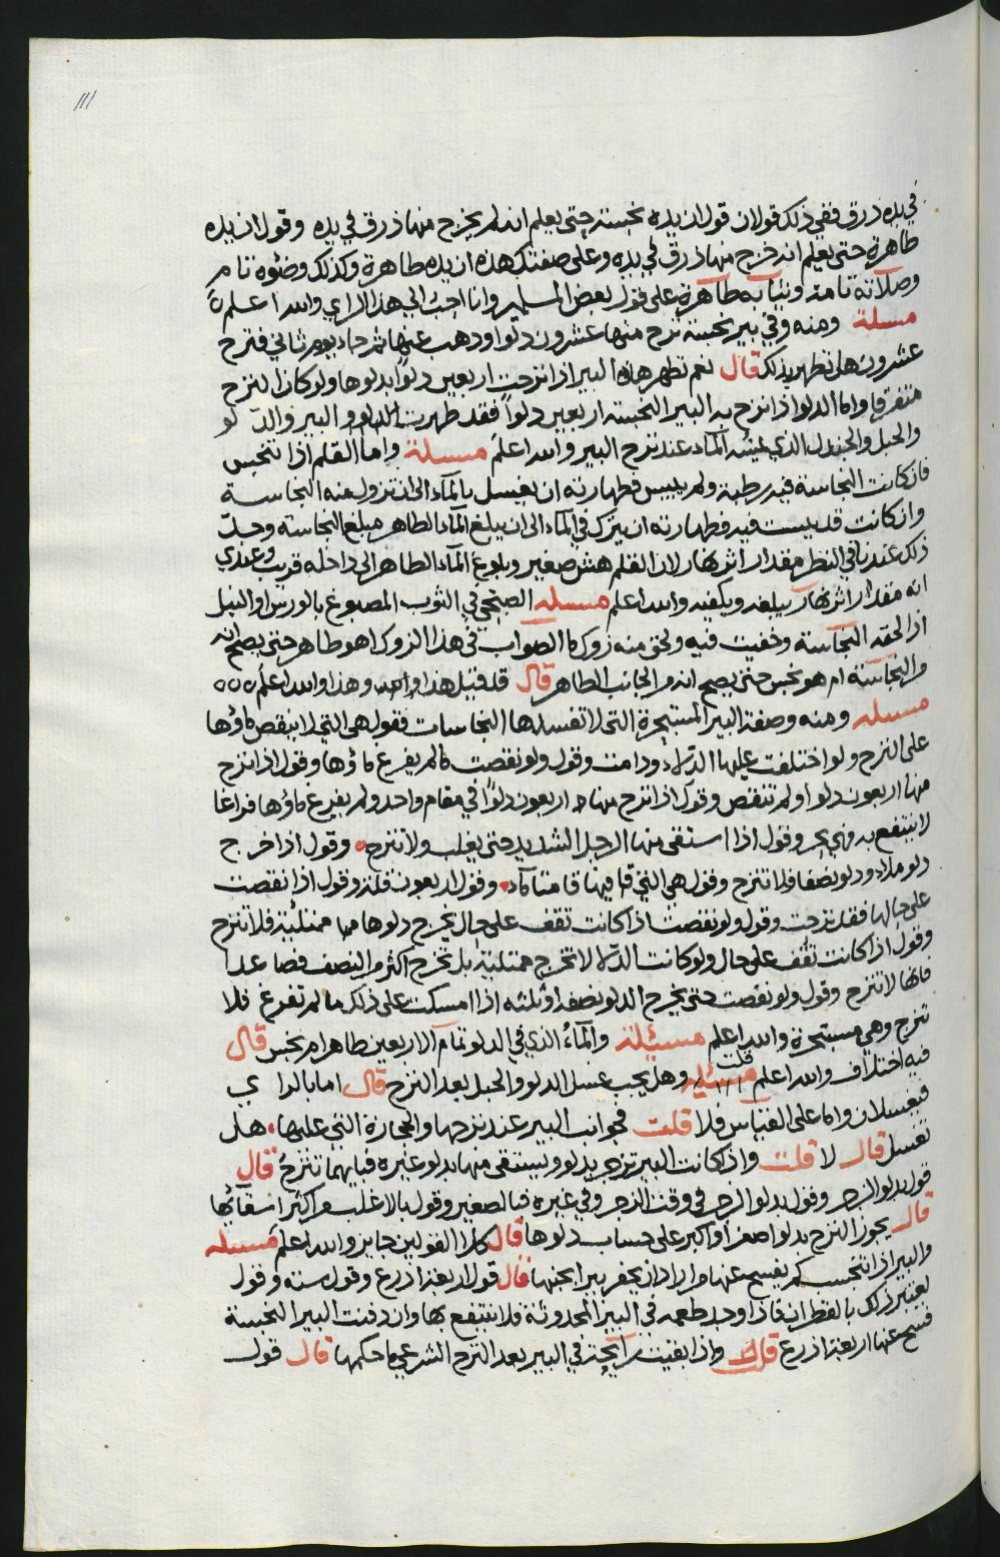 ١١١
في يده ذرق ففي ذلك قولان قول ان يده نجسة حتى يعلم انه لم يخرج منها ذرق في يده وقول ان يده
طاهرة حتى يعلم انه خرج منها ذرق في يده وعلى صفتك هذه ان يده طاهرة وكذلك وضوءه تام
وصلاته تامة وثيابه طاهرة على قول بعض المسلمين وانا احب الى هذا الراي والله اعلم
مسئلة ومنه وفي بير نجسة نزح منها عشرون دلوا وذهب عنها ثم جاء يوم ثاني فنزح
عشرون هل تطهر بذلك قال نعم تطهر هذه البير اذا نزحت اربعين دلوا بدلوها ولو كان النزح
متفرقا واما الدلو اذا نزح به البير النجسة اربعين دلواً فقد طهرت الدلو و البير والدلو
والحبل والجندل الذي يمسه المآء عند نزح البير والله اعلم مسئلة واما القلم اذا تنجس
فان كانت النجاسة فيه رطبة ولم ييبس فطهارته ان يغسل بالمآء الى ان تزول منه النجاسة
وان كانت قد يبست فيه فطهارته ان يترك في المآء الى ان يبلغ المآء الطاهر مبلغ النجاسة وحدّ
ذلك عندنا في النظر مقدار اثر نهار لان القلم هش صغير وبلوغ المآء الطاهر الى داخله قريب وعندي
انه مقدار اثر نهار يبلغه ويكفيه والله اعلم مسئله الصبحي في الثوب المصبوغ بالورس او النيل
اذا لحقه النجاسة وخفيت فيه ولحق منه زوك ما الصواب في هذا الزوك اهو طاهر حتى يصح انه
والنجاسة ام هو نجس حتى يصح انه من الجانب الطاهر قال قد قيل هذا وهذا والله اعلم
مسئله ومنه وصفة البير المستبحرة التي لا تفسدها النجاسات فقول هي التي لا ينقص ماؤها
على النزح ولو اختلفت عليها الدلاء ودامت وقول ولو نقصت ما لم يفرغ ماؤها وقول اذا نزح
منها اربعون دلوا ولم تنقص وقول اذا نزح منها اربعون دلوًا في مقام واحد ولم يفرغ ماؤها فراغا
لا ينتفع به فهي بحر وقول اذا استقى منها الرجل الشديد حتى يغلب ولا تنزح وقول اذا خرج
دلو ملاء ودلو نصفا فلا تنزح وقول هي التي فيها قامتا مآء وقول اربعون قلة وقول اذا نقصت
على حالها فقد نزحت وقول ولو نقصت اذا كانت تقف على حال يخرج دلوها ممتلئة فلا تنزح
وقول اذا كانت تقف على حال ولو كانت الدلاء لا تخرج ممتلية بل تخرج اكثر من النصف فصاعدا
فانها لا تنزح وقول ولو نقصت حتى يخرج الدلو نصفه او ثلثه اذا امسكت على ذلك ما لم تفرغ فلا
تنزح وهي مستبحرة والله اعلم مسئلة والمآء الذي في الدلو تمام الاربعين طاهر ام نجس قال
فيه اختلاف والله اعلم قلت وهل يجب غسل الدلو والحبل بعد النزح قال اما بالراي
فيغسلان واما على القياس فلا قلت فجوانب البير عند نزحها والحجارة التي عليها هل
تغسل قال لا قلت واذا كانت البير تزجر بدلو ويستقى منها بدلو غيره فبايهما تنزح قال
قول بدلو الزجر وقول بدلو الزجر في وقت الزجر وفي غيره فبالصغير وقول بالاغلب من اكثر اسقآئها
قال يجوز النزح بدلو اصغر او اكبر على حساب دلوها قال كلا القولين جايز والله اعلم مسئله
والبير اذا تنجست كم يفسح عنها من اراد ان يحفر بيرا بجنبها قال قول اربعة اذرع وقول ستة وقول
يعتبر ذلك بالقطران فاذا وجد طعمه في البير المحدوثة فلا ينتفع بها وان دفنت البير النجسة
فسح عنها اربعة اذرع قلت واذا بقيت رآيحة في البير بعد النزح الشرعي ما حكمها قال قول